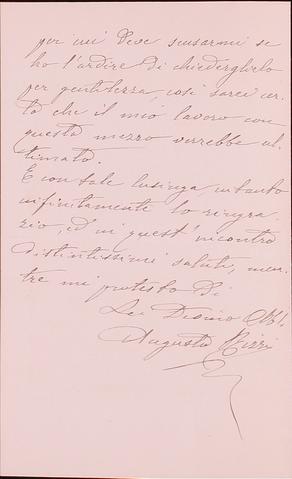 per cui Deve scusarmi se
ho l'ardire di chiederglielo
per gentilezza, così sarei cer.
to che il mio lavoro con
questo mezzo verrebbe ul.
timato.
E con tale lusinga, intanto
infinitamente lo ringra.
zio, ed in quest'incontro
distintissimi saluti, men.
tre mi protesto di
Lei Obbl.
Augusto Rizzi